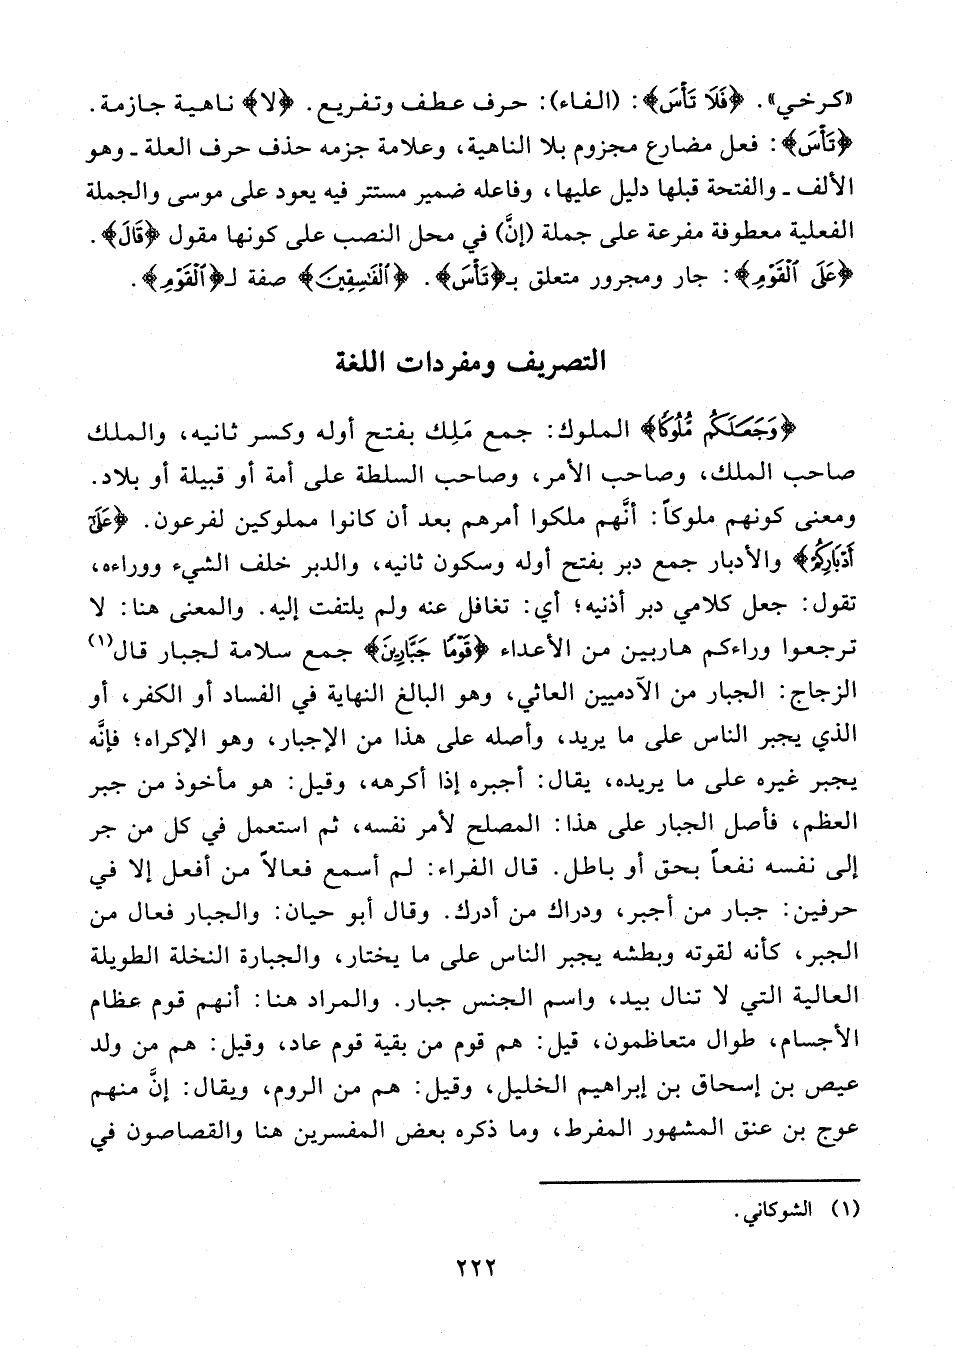 «كرخي». ﴿فَلَا تَأْسَ﴾: (الفاء): حرف عطف وتفريع. ﴿لا﴾ ناهية جازمة.
﴿تَأْسَ﴾: فعل مضارع مجزوم بلا الناهية، وعلامة جزمه حذف حرف العلة ـ وهو
الألف ـ والفتحة قبلها دليل عليها، وفاعله ضمير مستتر فيه يعود على موسى والجملة
الفعلية معطوفة مفرعة على جملة (إنَّ) في محل النصب على كونها مقول ﴿قَالَ﴾.
﴿عَلَى ٱلْقَوْمِ﴾: جار ومجرور متعلق بـ﴿تَأْسَ﴾. ﴿ٱلْفَٰسِقِينَ﴾ صفة لـ﴿ٱلْقَوْمِ﴾.
التصريف ومفردات اللغة
﴿وَجَعَلَكُم مُّلُوكًا﴾ الملوك: جمع مَلِك بفتح أوله وكسر ثانيه، والملك
صاحب الملك، وصاحب الأمر، وصاحب السلطة على أمة أو قبيلة أو بلاد.
ومعنى كونهم ملوكاً: أنَّهم ملكوا أمرهم بعد أن كانوا مملوكين لفرعون. ﴿عَلَىٰٓ
أَدْبَارِكُمْ﴾ والأدبار جمع دبر بفتح أوله وسكون ثانيه، والدبر خلف الشيء ووراءه،
تقول: جعل كلامي دبر أذنيه؛ أي: تغافل عنه ولم يلتفت إليه. والمعنى هنا: لا
ترجعوا وراءكم هاربين من الأعداء ﴿قَوْمًا جَبَّارِينَ﴾ جمع سلامة لجبار قال(١)
الزجاج: الجبار من الآدميين العاتي، وهو البالغ النهاية في الفساد أو الكفر، أو
الذي يجبر الناس على ما يريد، وأصله على هذا من الإجبار، وهو الإكراه؛ فإنَّه
يجبر غيره على ما يريده، يقال: أجبره إذا أكرهه، وقيل: هو مأخوذ من جبر
العظم، فأصل الجبار على هذا: المصلح لأمر نفسه، ثم استعمل في كل من جر
إلى نفسه نفعاً بحق أو باطل. قال الفراء: لم أسمع فعالاً من أفعل إلا في
حرفين: جبار من أجبر، ودراك من أدرك. وقال أبو حيان: والجبار فعال من
الجبر، كأنه لقوته وبطشه يجبر الناس على ما يختار، والجبارة النخلة الطويلة
العالية التي لا تنال بيد، واسم الجنس جبار. والمراد هنا: أنهم قوم عظام
الأجسام، طوال متعاظمون، قيل: هم قوم من بقية قوم عاد، وقيل: هم من ولد
عيص بن إسحاق بن إبراهيم الخليل، وقيل: هم من الروم، ويقال: إنَّ منهم
عوج بن عنق المشهور المفرط، وما ذكره بعض المفسرين هنا والقصاصون في
(١) الشوكاني.
٢٢٢